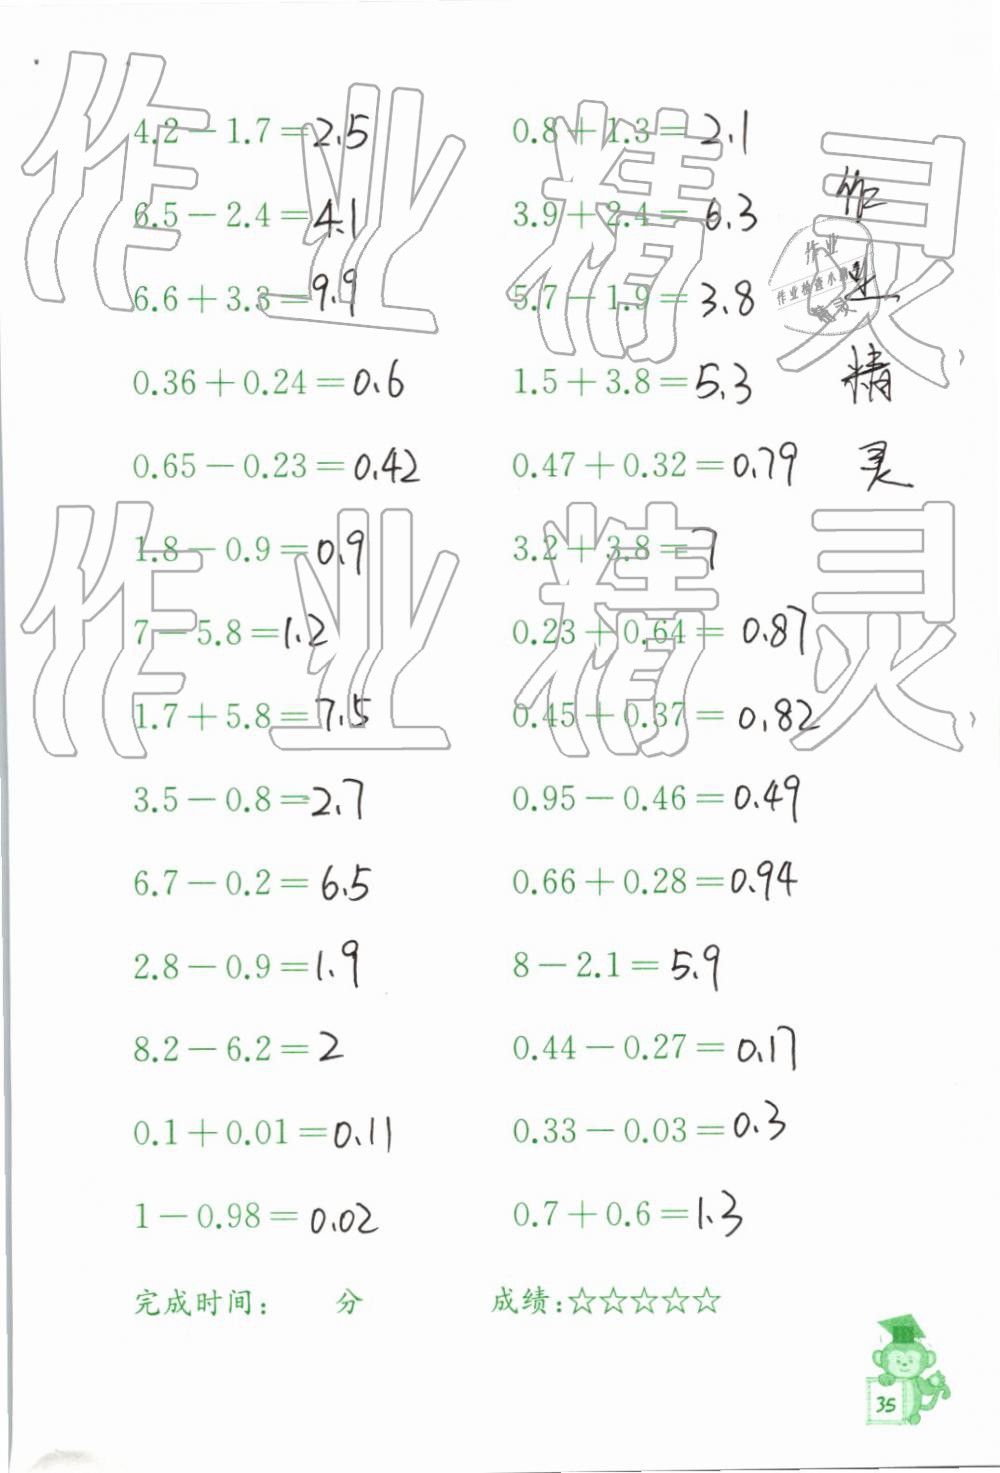 4.2－1.7＝2.5 0.8＋1.3＝2.1
6.5－2.4＝4.1 3.9＋2.4＝6.3
6.6＋3.3＝9.9 5.7－1.9＝3.8
0.36＋0.24＝0.6 1.5＋3.8＝5.3
0.65－0.23＝0.42 0.47＋0.32＝0.79
1.8－0.9＝0.9 3.2＋3.8＝7
7－5.8＝1.2 0.23＋0.64＝0.87
1.7＋5.8＝7.5 0.45＋0.37＝0.82
3.5－0.8＝2.7 0.95－0.46＝0.49
6.7－0.2＝6.5 0.66＋0.28＝0.94
2.8－0.9＝1.9 8－2.1＝5.9
8.2－6.2＝2 0.44－0.27＝0.17
0.1＋0.01＝0.11 0.33－0.03＝0.3
1－0.98＝0.02 0.7＋0.6＝1.3
完成时间： 分 成绩：☆☆☆☆☆
35
作业精灵
作业精灵
作业精灵
作业
作业检查小
精灵